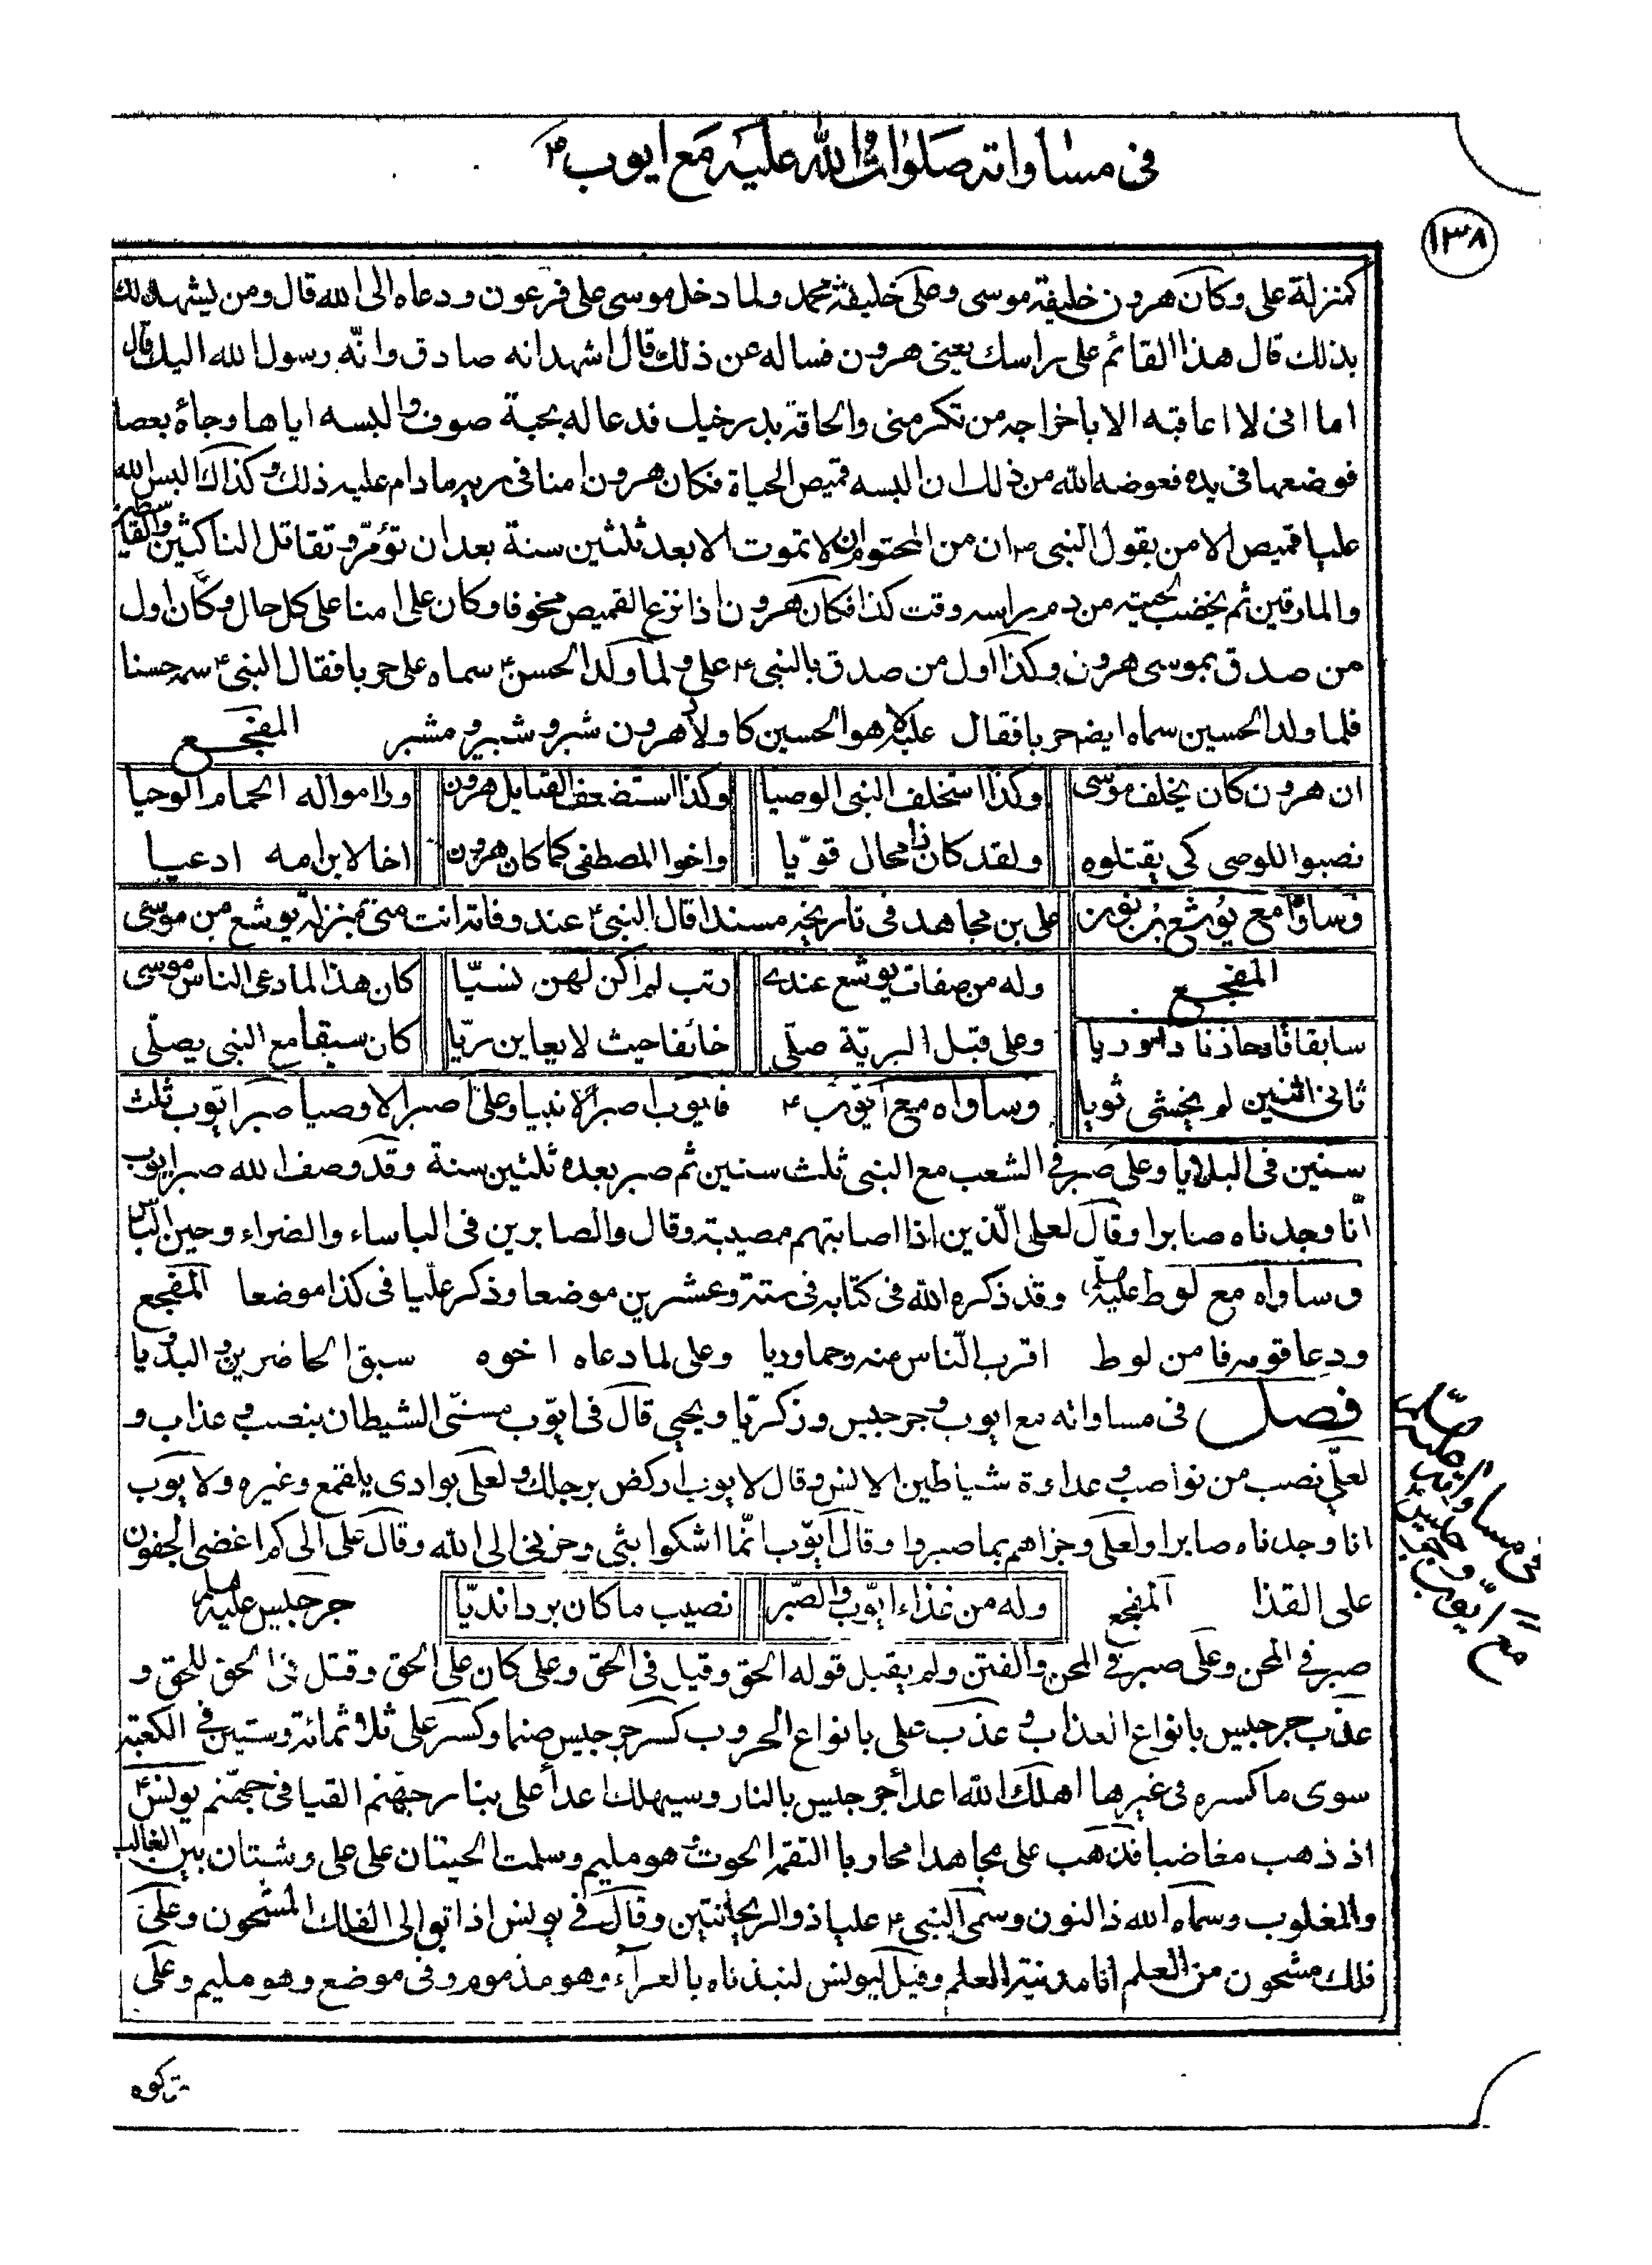 فى مساواته صلوات الله عليه مع ايوب ۴
١٣٨
كمنزلة على وكان هرون خليفة موسى وعلى خليفة محمد ولما دخل موسى على فرعون ودعاه الى الله قال ومن يشهد لك
بذلك قال هذا القائم على راسك يعنى هرون فساله عن ذلك قال اشهد انه صادق وانّه رسول الله اليك قال
اما انى لا اعاقبه الا باخراجه من تكرمتى والحاقه بدرجتك فدعا له بجبة صوف والبسه اياها وجاء بعصا
فوضعها فى يده فعوضه الله من ذلك ان البسه قميص الحياة فكان هرون امنا فى سربه مادام عليه ذلك وكذاك البس الله
عليا قميص الامن بقول النبى ص ان من المحتوم ان لا تموت الا بعد ثلثين سنة بعد ان تؤمّر وتقاتل الناكثين والقاسطين
والمارقين ثم يخضب لحيته من دم راسه وقت كذا فكان هرون اذا نزع القميص مخوفا وكان على امنا على كل حال وكان اول
من صدق بموسى هرون وكذا اول من صدق بالنبى ۴ على ولما ولد الحسن ۴ سماه على حربا فقال النبى ۴ سمه حسنا
فلما ولد الحسين سماه ايضه حربا فقال عليه لا هو الحسين كاولاد هرون شبر وشبير ومشبر المفجع
ان هرون كان يخلف موسى وكذا استخلف النبى الوصيا وكذا استضعف القبايل هرون وراموا له الحمام الوحيا
نصبوا للوصى كى يقتلوه ولقد كان ذا محال قوّيا واخوا المصطفى كما كان هرون اخا لابن امه ادعيا
وساواه مع يوشع بن نون على بن مجاهد فى تاريخه مسندا قال النبى ۴ عند وفاته انت منى بمنزلة يوشع من موسى
المفجع وله من صفات يوشع عندى رتب لم اكن لهن نسيّا كان هذا لما دعى الناس موسى
سابقا قادحا زنادا وريا وعلى قبل البريّة صلّى خائفا حيث لا يعاين ريّا كان سبقا مع النبى يصلّى
ثانى اثنين لم يخشى ثويا وساواه مع ايّوب ۴ فايوب اصبر الانبيا وعلى اصبر الاوصيا صبر ايّوب ثلث
سنين فى البلايا وعلى صبر فى الشعب مع النبى ثلث سنين ثم صبر بعده ثلثين سنة وقد وصف الله صبر ايوب
انّا وجدناه صابرا وقال لعلى الّذين اذا اصابتهم مصيبة وقال والصابرين فى الباساء والضراء وحين الباس
وساواه مع لوط عليه وقد ذكره الله فى كتابه فى ستة وعشرين موضعا وذكر عليا فى كذا موضعا المفجع
ودعا قومه فامن لوط اقرب الّناس منه رحما وريا وعلى لما دعاه اخوه سبق الحاضرين والبدويا
فصل فى مساواته مع ايوب وجرجيس وزكريّا ويحيى قال فى ايّوب مسنّى الشيطان بنصب وعذاب و
لعلّى نصب من نواصب وعداوة شياطين الانس وقال لايوب اركض برجلك ولعلى بوادى يلقمع وغيره ولايّوب
انا وجدناه صابرا ولعلى وجزاهم بما صبروا وقال ايّوب انّما اشكوا بثى وحزنى الى الله وقال على الى كم اغضى الجفون
على القذا المفجع وله من غذاء ايّوب والصّبر نصيب ما كان بردا نديّا جرجيس عليه
صبر فى المحن وعلى صبر فى المحن والفتن ولم يقبل قوله الحق وقيل فى الحق وعلى كان على الحق وقتل فى الحق للحق و
عذّب جرجيس بانواع العذاب وعذب على بانواع الحروب كسر جرجيس صنما وكسر على ثلاثمائة وستين فى الكعبة
سوى ما كسره فى غيرها اهلك الله اعداء جرجيس بالنار وسيهلك اعداء على بنار جهنم القيا فى جهنّم يونس ۴
اذ ذهب مغاضبا فذهب على مجاهدا محاربا التقمه الحوت وهو مليم وسلمت الحيتان على على وشتان بين الغالب
والمغلوب وسماه الله ذالنون وسمى النبى ۴ عليا ذو الريحانتين وقال فى يونس اذ ابق الى الفلك المشحون وعلى
فلك مشحون من العلم انا مدينة العلم وقيل ليونس لنبذناه بالعراء وهو مذموم وفى موضع وهو مليم وعلى
تركوه
فى مساواته
مع ايّوب وجرجيس